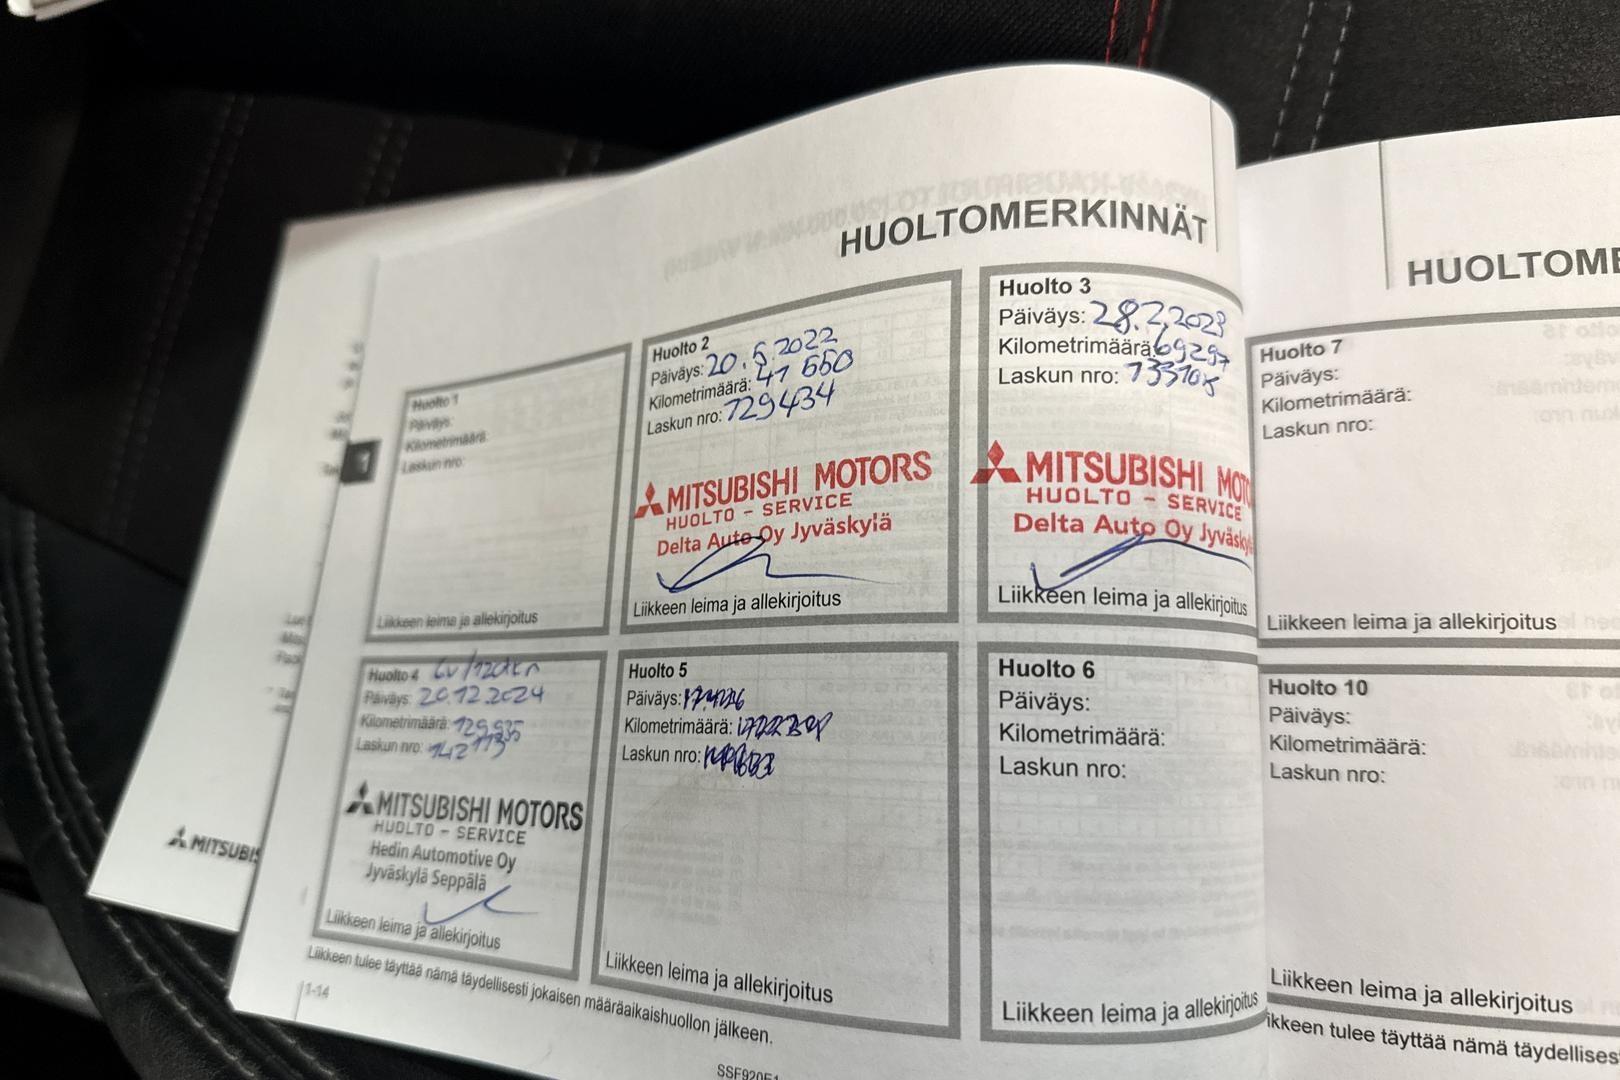 HUOLTOMERKINNÄT
Huolto 1
Päiväys:
Kilometrimäärä:
Laskun nro:
Liikkeen leima ja allekirjoitus
Huolto 2
Päiväys: 20.5.2022
Kilometrimäärä: 41 660
Laskun nro: 729434
MITSUBISHI MOTORS
HUOLTO - SERVICE
Delta Auto Oy Jyväskylä
Liikkeen leima ja allekirjoitus
Huolto 3
Päiväys: 28.2.2023
Kilometrimäärä: 69297
Laskun nro:
MITSUBISHI MOT
HUOLTO - SERVICE
Delta Auto Oy Jyväsky
Liikkeen leima ja allekirjoitus
1
Huolto 4
Päiväys: 20.12.2024
Kilometrimäärä: 129935
Laskun nro: 142113
MITSUBISHI MOTORS
HUOLTO - SERVICE
Hedin Automotive Oy
Jyväskylä Seppälä
Liikkeen leima ja allekirjoitus
Huolto 5
Päiväys:
Kilometrimäärä:
Laskun nro:
Liikkeen leima ja allekirjoitus
Huolto 6
Päiväys:
Kilometrimäärä:
Laskun nro:
Liikkeen leima ja allekirjoitus
Liikkeen tulee täyttää nämä täydellisesti jokaisen määräaikaishuollon jälkeen.
1-14
MITSUBIS
HUOLTOME
Huolto 7
Päiväys:
Kilometrimäärä:
Laskun nro:
Liikkeen leima ja allekirjoitus
Huolto 10
Päiväys:
Kilometrimäärä:
Laskun nro:
Liikkeen leima ja allekirjoitus
ikkeen tulee täyttää nämä täydellises